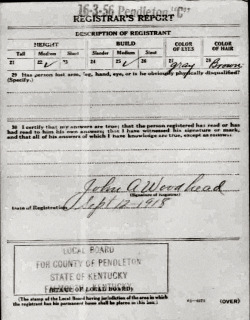 16-3-56 Pendleton "C"
REGISTRAR'S REPORT
DESCRIPTION OF REGISTRANT
HEIGHT BUILD COLOR OF EYES COLOR OF HAIR
Tall Medium Short Slender Medium Stout
21 22 ✓ 23 24 25 ✓ 26 27 gray 28 Brown
29 Has person lost arm, leg, hand, eye, or is he obviously physically disqualified?
(Specify.)
30 I certify that my answers are true; that the person registered has read or has
had read to him his own answers; that I have witnessed his signature or mark,
and that all of his answers of which I have knowledge are true, except as follows:
John A Woodhead
(Signature of Registrar)
Date of Registration Sept 12-1918
LOCAL BOARD
FOR COUNTY OF PENDLETON
STATE OF KENTUCKY
KENTUCKY
(STAMP OF LOCAL BOARD)
(The stamp of the Local Board having jurisdiction of the area in which
the registrant has his permanent home shall be placed in this box.)
(OVER)